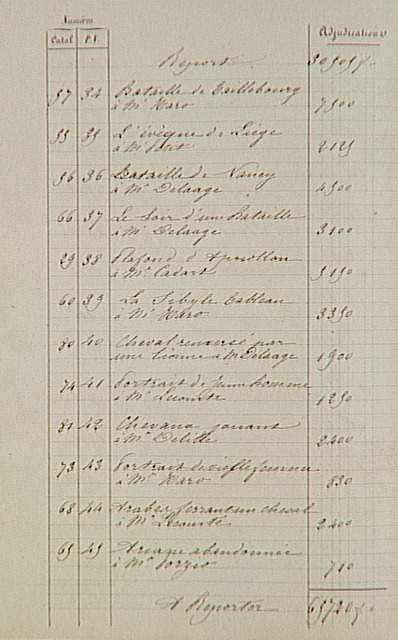 Numéros
Catal P.V. Adjudications
Report 30505
57 34 Bataille de Taillebourg
à Mr Haro 7500
55 35 L'évêque de Liège
à Mr Petit 2125
56 36 Bataille de Nancy
à Mr Delaage 4500
66 37 Le Soir d'une Bataille
à Mr Delaage 3100
29 38 Plafond d'Apollon
à Mr Cadart 5150
60 39 La Sibyle tableau
à Mr Haro 3350
80 40 Cheval renversé par
une lionne à Mr Delaage 1900
74 41 Portrait de jeune homme
à Mr Lecomte 1250
81 42 Chevaux jouant
à Mr Delille 2400
73 43 Portrait de vieille femme
à Mr Haro 830
68 44 Arabes ferrant un cheval
à Mr Lecomte 2400
65 45 Ariane abandonnée
à Mr 710
A Reporter 65720